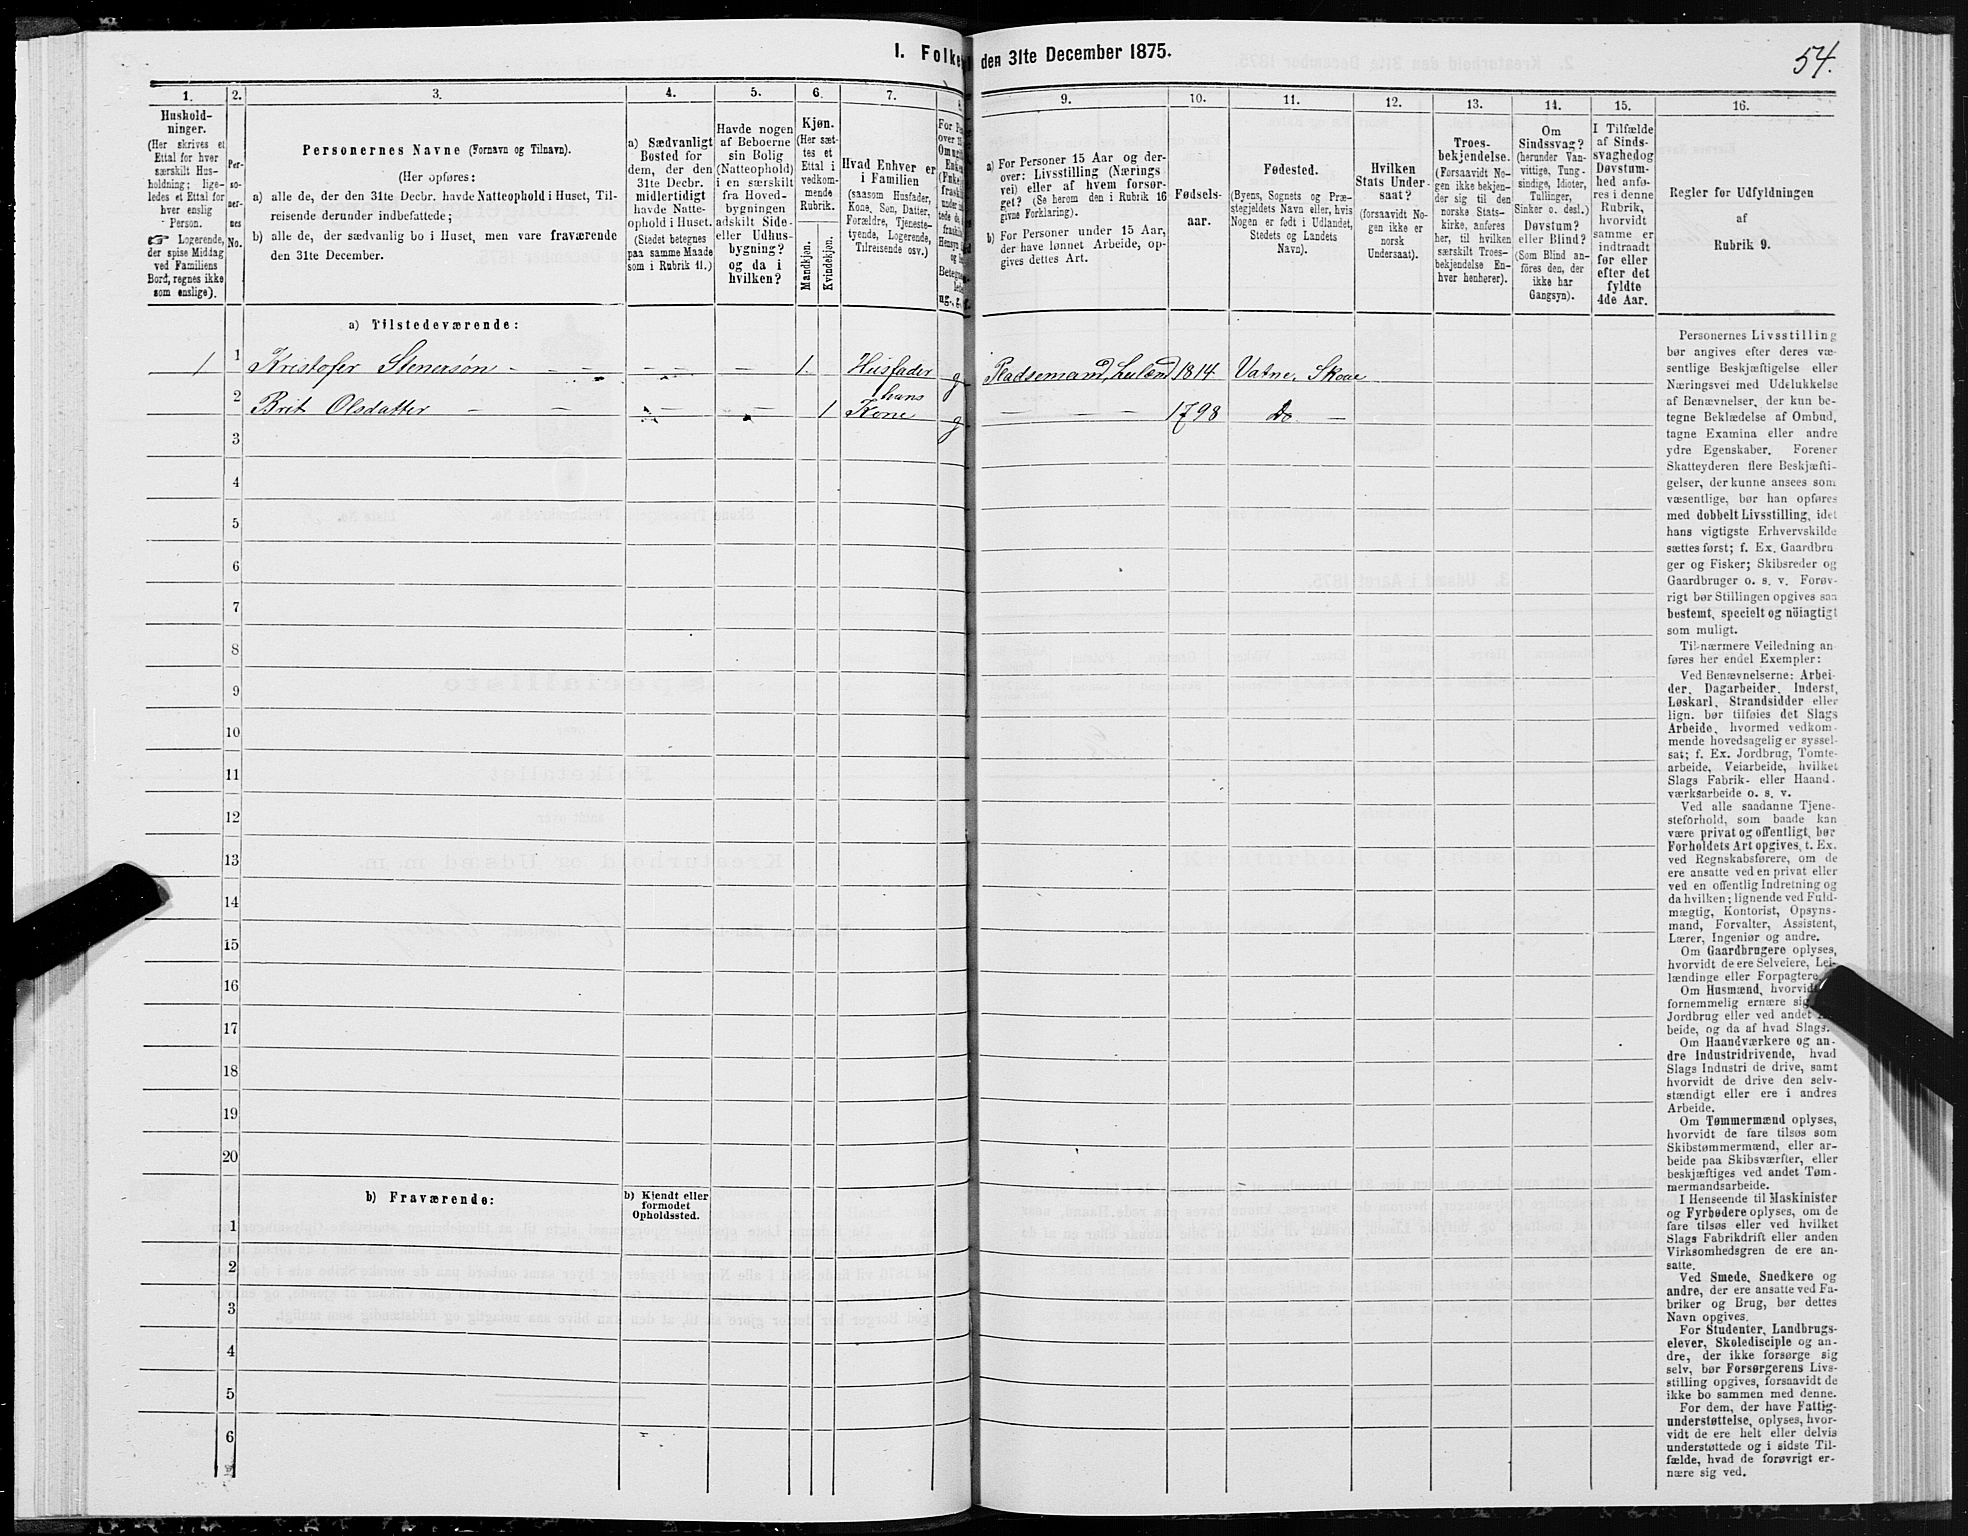 I. Folke
den 31te December 1875.
54.
1.
Hushold-
ninger.
(Her skrives et
Ettal for hver
særskilt Hus-
holdning; lige-
ledes et Ettal for
hver enslig
Person.
☞ Logerende,
der spise Middag
ved Familiens
Bord, regnes ikke
som enslige).
2.
Per-
so-
ner-
nes
No.
3.
Personernes Navne (Fornavn og Tilnavn).
(Her opføres:
a) alle de, der den 31te Decbr. havde Natteophold i Huset, Til-
reisende derunder indbefattede;
b) alle de, der sædvanlig bo i Huset, men vare fraværende
den 31te December.
4.
a) Sædvanligt
Bosted for
dem, der den
31te Decbr.
midlertidigt
havde Natte-
ophold i Huset.
(Stedet betegnes
paa samme Maade
som i Rubrik 11.)
5.
Havde nogen
af Beboerne
sin Bolig
(Natteophold)
i en særskilt
fra Hoved-
bygningen
adskilt Side-
eller Udhus-
bygning?
og da i
hvilken?
6.
Kjøn.
(Her sæt-
tes et
Ettal i
vedkom-
mende
Rubrik.
Mandkjøn.
Kvindekjøn.
7.
Hvad Enhver er
i Familien
(saasom Husfader,
Kone, Søn, Datter,
Forældre, Tjeneste-
tyende, Logerende,
Tilreisende osv.)
9.
a) For Personer 15 Aar og der-
over: Livsstilling (Nærings
vei) eller af hvem forsør-
get? (Se herom den i Rubrik 16
givne Forklaring).
b) For Personer under 15 Aar,
der have lønnet Arbeide, op-
gives dettes Art.
10.
Fødsels-
aar.
11.
Fødested.
(Byens, Sognets og Præ-
stegjeldets Navn eller, hvis
Nogen er født i Udlandet,
Stedets og Landets
Navn).
12.
Hvilken
Stats Under-
saat?
(forsaavidt No-
gen ikke er
norsk
Undersaat).
13.
Troes-
bekjendelse.
(Forsaavidt No-
gen ikke bekjen-
der sig til den
norske Stats-
kirke, anføres
her, til hvilken
særskilt Troes-
bekjendelse En-
hver henhører).
14.
Om
Sindssvag?
(herunder Van-
vittige, Tung-
sindige, Idioter,
Tullinger,
Sinker o. desl.)
Døvstum?
eller Blind?
(Som Blind an-
føres den, der
ikke har
Gangsyn).
15.
I Tilfælde
af Sinds-
svaghed og
Døvstum-
hed anfø-
res i denne
Rubrik,
hvorvidt
samme er
indtraadt
før eller
efter det
fyldte
4de Aar.
16.
Regler for Udfyldningen
af
Rubrik 9.
a) Tilstedeværende:
1 1 Kristofer Stenersøn - - - - - - 1. Husfader g Pladsemand, 1814 Vatne, Skoue
2 Brit Olsdatter - - - - 1 hans Kone g - - - 1798 Do -
3
4
5
6
7
8
9
10
11
12
13
14
15
16
17
18
19
20
b) Fraværende:
b) Kjendt eller
formodet
Opholdssted.
1
2
3
4
5
6
Personernes Livsstilling
bør angives efter deres væ-
sentlige Beskjæftigelse eller
Næringsvei med Udelukkelse
af Benævnelser, der kun be-
tegne Beklædelse af Ombud,
tagne Examina eller andre
ydre Egenskaber. Forener
Skatteyderen flere Beskjæfti-
gelser, der kunne ansees som
væsentlige, bør han opføres
med dobbelt Livsstilling, idet
hans vigtigste Erhvervskilde
sættes først; f. Ex. Gaardbru
ger og Fisker; Skibsreder og
Gaardbruger o. s. v. Forøv-
rigt bør Stillingen opgives saa
bestemt, specielt og nöiagtigt
som muligt.
Til nærmere Veiledning an-
føres her endel Exempler:
Ved Benævnelserne: Arbei-
der, Dagarbeider, Inderst,
Løskarl, Strandsidder eller
lign. bør tilføies det Slags
Arbeide, hvormed vedkom-
mende hovedsagelig er syssel-
sat; f. Ex. Jordbrug, Tomte-
arbeide, Veiarbeide, hvilket
Slags Fabrik- eller Haand-
værksarbeide o. s. v.
Ved alle saadanne Tjene-
steforhold, som baade kan
være privat og offentligt, bør
Forholdets Art opgives, t. Ex.
ved Regnskabsførere, om de
ere ansatte ved en privat eller
ved en offentlig Indretning og
da hvilken; lignende ved Fuld-
mægtig, Kontorist, Opsyns-
mand, Forvalter, Assistent,
Lærer, Ingeniør og andre.
Om Gaardbrugere oplyses,
hvorvidt de ere Selveiere, Lei-
lændinge eller Forpagtere.
Om Husmænd, hvorvidt
fornemmelig ernære sig
Jordbrug eller ved andet
beide, og da af hvad Slags.
Om Haandværkere og an-
dre Industridrivende, hvad
Slags Industri de drive, samt
hvorvidt de drive den selv-
stændigt eller ere i andres
Arbeide.
Om Tømmermænd oplyses,
hvorvidt de fare tilsøs som
Skibstømmermænd, eller ar-
beide paa Skibsværfter, eller
beskjæftiges ved andet Tøm-
mermandsarbeide.
I Henseende til Maskinister
og Fyrbødere oplyses, om de
fare tilsøs eller ved hvilket
Slags Fabrikdrift eller anden
Virksomhedsgren de ere an-
satte.
Ved Smede, Snedkere og
andre, der ere ansatte ved Fa-
briker og Brug, bør dettes
Navn opgives.
For Studenter, Landbrugs-
elever, Skoledisciple og an-
dre, der ikke forsørge sig
selv, bør Forsørgerens Livs-
stilling opgives, forsaavidt de
ikke bo sammen med denne.
For dem, der have Fattig-
understøttelse, oplyses, hvor-
vidt de ere helt eller delvis
understøttede og i sidste Til-
fælde, hvad de forøvrigt er-
nære sig ved.